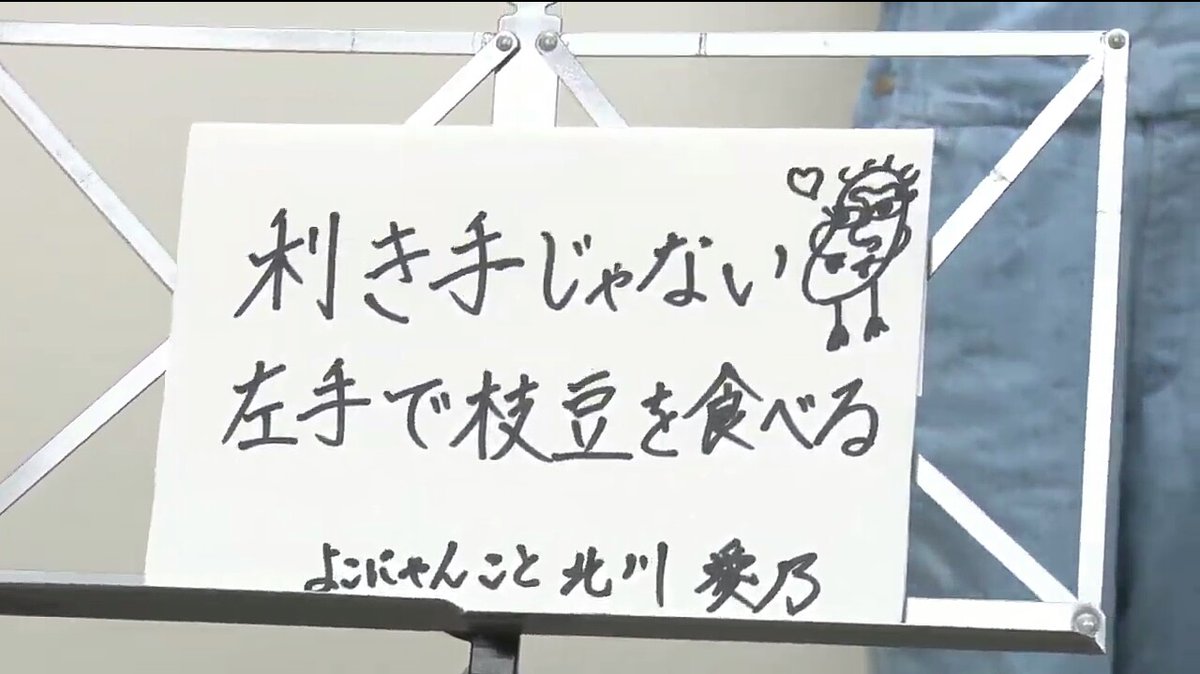 利き手じゃない
左手で枝豆を食べる
よこにゃんこと 北川 愛乃